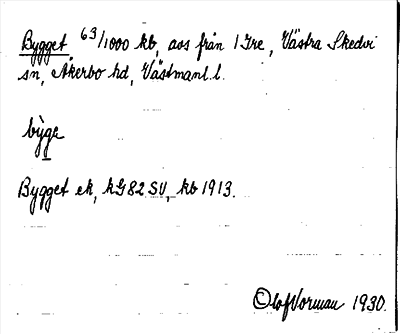 Bygget, 63/1000 kb, avs från 1 Ire, Västra Skedvi
sn, Åkerbo hd, Västmanl. l.
bỳge
Bygget ek, hG82 SV, kb 1913.
Olof Vorman 1930.